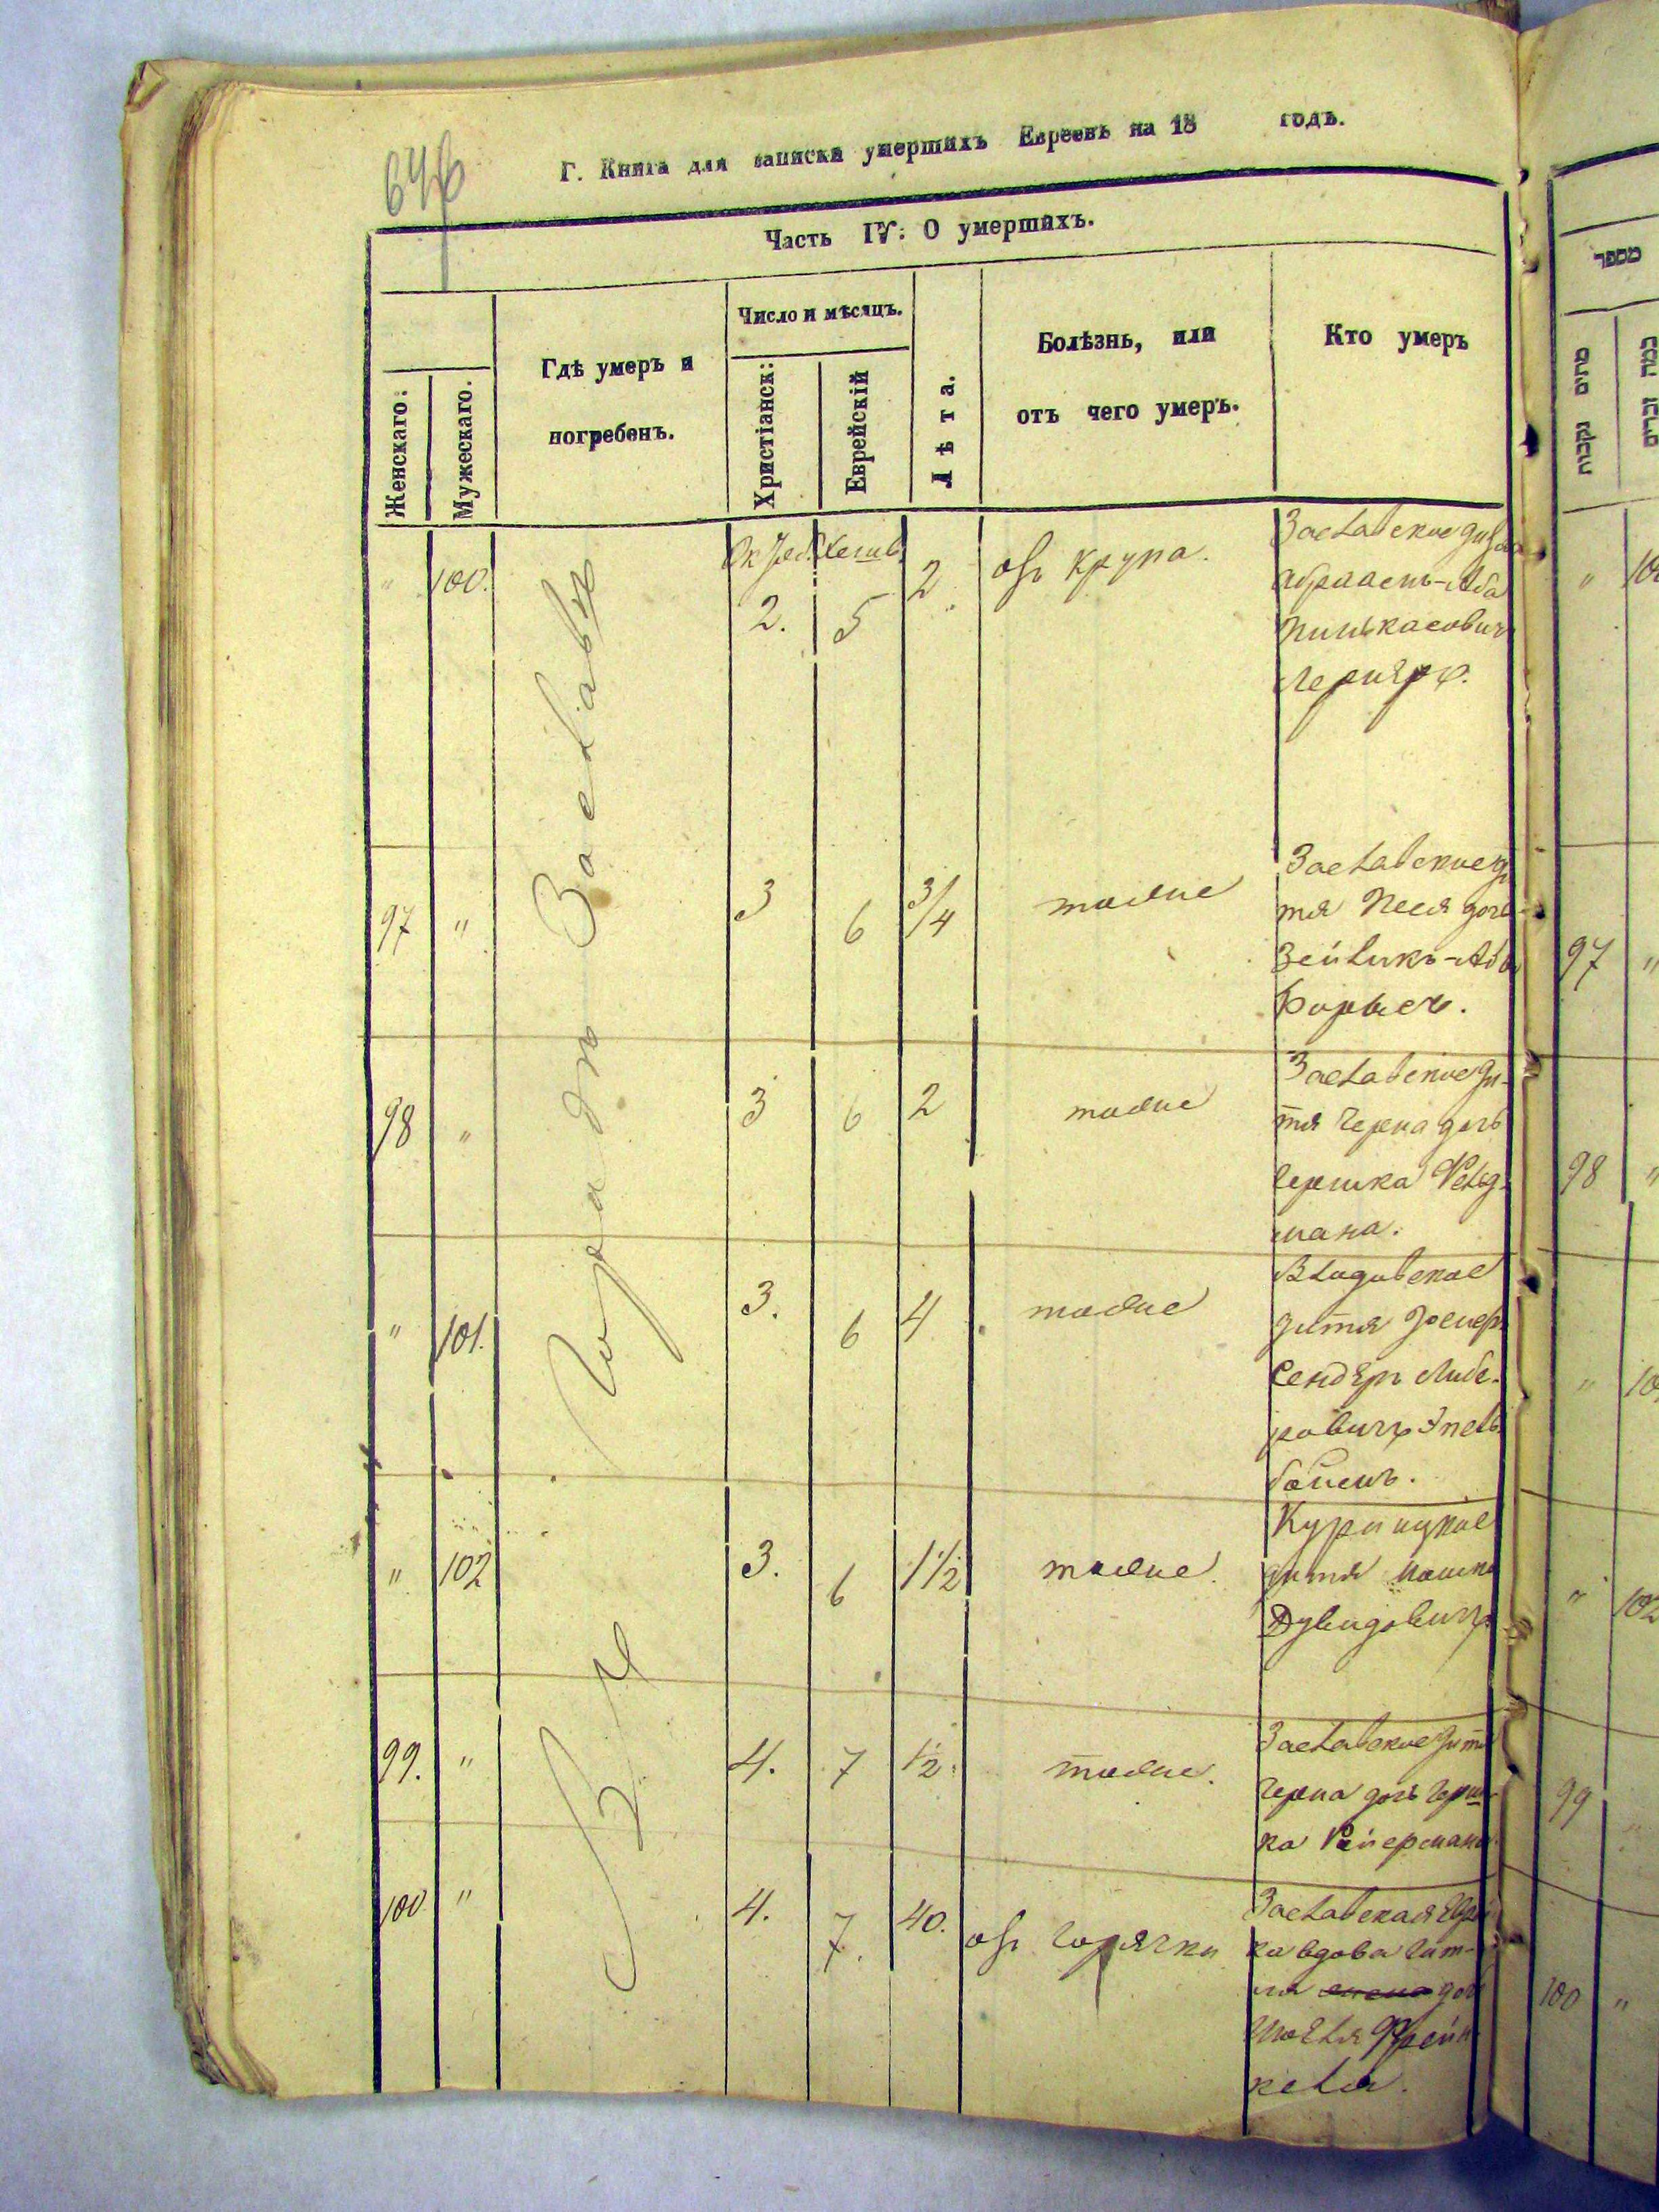 646
Г. Книга для записки умершихъ Евреевъ на 18 годъ.
Часть IV: О умершихъ.
Женскаго:
Мужескаго.
Гдѣ умеръ и погребенъ.
Число и мѣсяцъ.
Христіанск:
Еврейскій
Лѣта.
Болѣзнь, или отъ чего умеръ.
Кто умеръ
Въ Городѣ Заславѣ
" 100. Октяб. Хешв. 2. 5 2 отъ крупа.
Заславское дитя
Абрамъ-Аба
Пинькасовичъ
Лернеръ.
97 " 3 6 3/4 тоже
Заславское ди
тя Песя дочь
Зейликъ-Аба
98 " 3 6 2 тоже
Заславское ди-
тя Черна дочь
Гершка Фельд
мана.
" 101. 3. 6 4 тоже
дитя
Сендеръ Либе-
ровичъ Эпель
боймъ.
" 102 3. 6 1 1/2 тоже.
дитя Мошко
Дувидовичъ
99. " 4. 7 1/2. тоже.
Заславское дитя
Черна дочь Герш-
ка
100 " 4. 7. 40. отъ горячки
Заславская Еврей
ка вдова Гит-
ля дочь
Френ
келя.
מספר
97 "
98 "
" 102
99
100 "